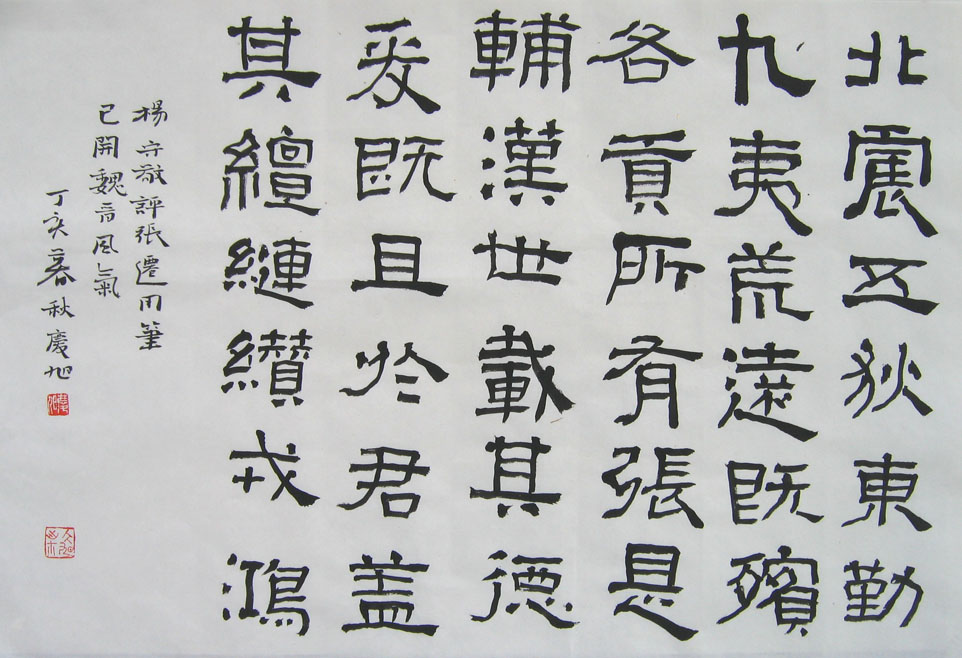 北震五狄東勤
九夷荒遠既殯
各貢所有張是
輔漢世載其德
爰既且於君盖
其繵縺纘戎鴻
楊守敬評張遷用筆
已開魏晉風氣
丁亥暮秋慶旭